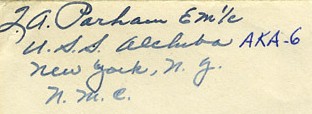 J. A. Parham EM 1/c
U.S.S. Alchiba AKA-6
New York, N. Y.
N. M. C.